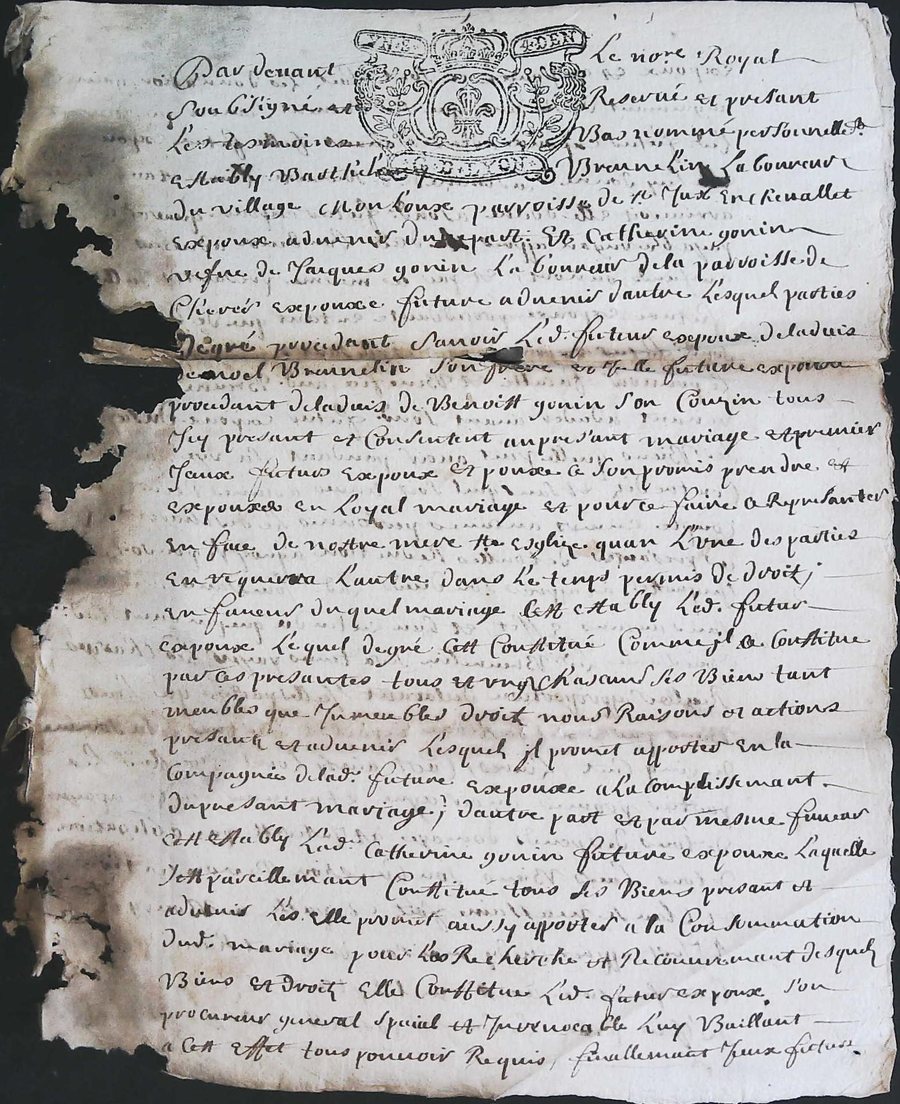 VN.S 4.DEN
G.D.LYON
Par devant Le no.re Royal
Soubsigné et Reservé et presant
Les tesmoins Bas nommé personnelle.
Estably Barthele Brunelin Laboureur
du village Monloux parroisse de s.t Jux En chevallet
Expoux advenir dune part, Et Catherine gonin
vefve de Jacques gonin Laboureur de la parroisse de
Cherer Expouxe future advenir dautre Lesquel parties
degré procedant scavoir Led. futur Expoux deladvis
de noel Brunelin son frere et elle future Expouxe
procedant deladvis de Benoist gonin son Couzin tous
Jcy presant et Consentent au presant mariage et premier
Jeux futurs Expoux et pouxe ce son promis prendre et
Expouxe En Loyal mariage et pour ce faire ce Representer
En face de nostre mere s.te Esglize quan Lune des parties
En requerra Lautre dans Le temps permis de droit,
En faveur duquel mariage cest estably Led. futur
Expoux Lequel degré cest Constitué Comme jl ce Constitue
par ces presantes tous et ung Chascuns ses Biens tant
meubles que Jmeubles droit nons Raisons et actions
presant et advenir Lesquel jl promet apporter En la
Compagnée delad. future Expouxe a La Complissemant
du presant mariage, dautre part et par mesme faveur
cest estably Lad. Catherine gonin future Expouxe Laquelle
sest pareillemant Constitué tous ses Biens presant et
advenir Les Elle promet aussy apporter a la Consommation
dud. mariage pour Les Recherche et Recouvremant desquel
Biens et droit Elle Constitue Led. futur Expoux son
procureur general spaial et Jrrevocable Luy Baillant
a Cest Effet tous pouvoir Requis, finallemant Jeux futur